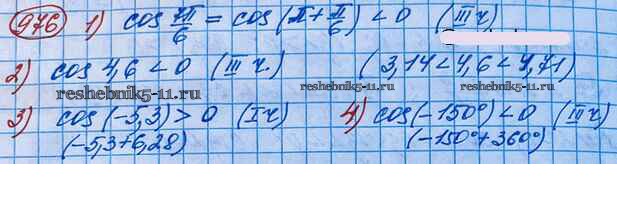 976 1) cos 7π/6 = cos (π + π/6) < 0 (III ч)
2) cos 4,6 < 0 (III ч.) (3,14 < 4,6 < 4,71)
reshebnik5-11.ru reshebnik5-11.ru
3) cos (-5,3) > 0 (I ч) 4) cos (-150°) < 0 (III ч)
(-5,3+6,28) (-150°+360°)